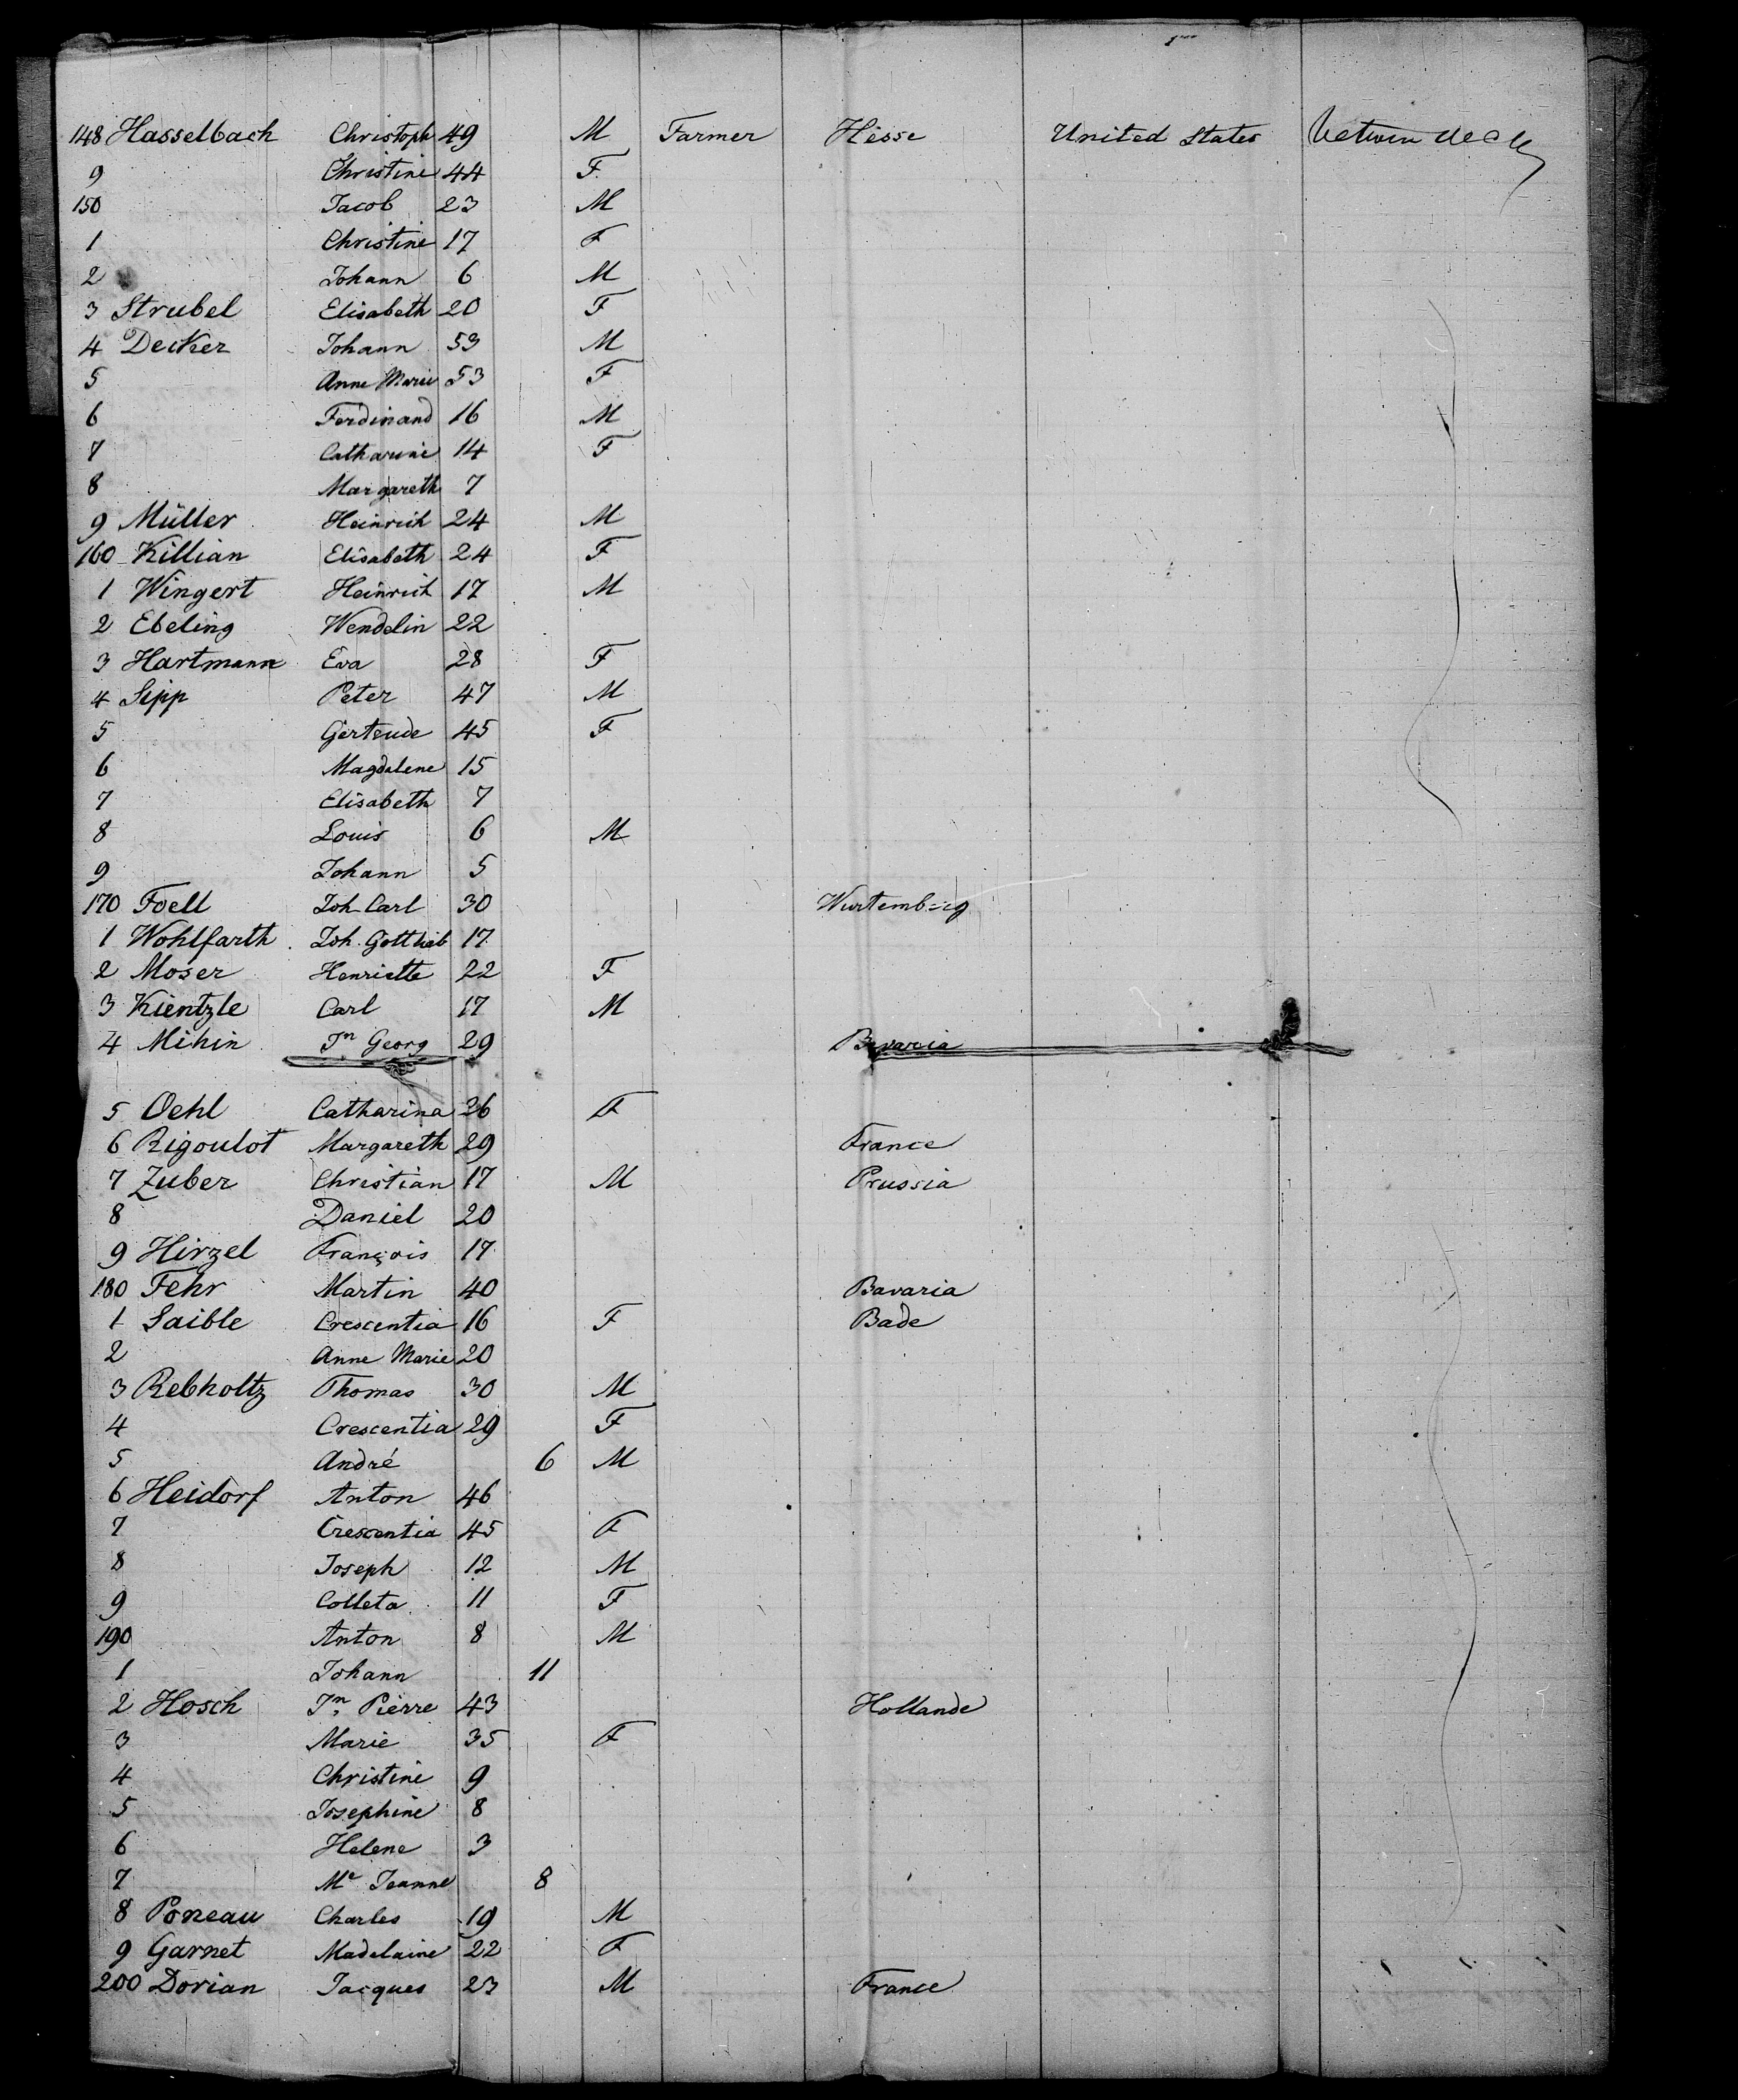 148 Hasselbach Christoph 49 M Farmer Hesse United States between deck
9 Christine 44 F
150 Jacob 23 M
1 Christine 17 F
2 Johann 6 M
3 Strubel Elisabeth 20 F
4 Decker Johann 53 M
5 Anne Marie 53 F
6 Ferdinand 16 M
7 Catharine 14 F
8 Margareth 7
9 Müller Heinrich 24 M
160 Killian Elisabeth 24 F
1 Wingert Heinrich 17 M
2 Ebeling Wendelin 22
3 Hartmann Eva 28 F
4 Sipp Peter 47 M
5 Gertrude 45 F
6 Magdalene 15
7 Elisabeth 7
8 Louis 6 M
9 Johann 5
170 Foell Joh. Carl 30 Wurtemberg
1 Wohlfarth Joh. Gottlieb 17
2 Moser Henriette 22 F
3 Kientzle Carl 17 M
4 Mihin Jn Georg 29 Bavaria
5 Oehl Catharina 26 F
6 Rigoulot Margareth 29 France
7 Zuber Christian 17 M Prussia
8 Daniel 20
9 Hirzel François 17
180 Fehr Martin 40 Bavaria
1 Saible Crescentia 16 F Bade
2 Anne Marie 20
3 Rebholtz Thomas 30 M
4 Crescentia 29 F
5 André 6 M
6 Heidorf Anton 46
7 Crescentia 45 F
8 Joseph 12 M
9 Colleta 11 F
190 Anton 8 M
1 Johann 11
2 Hosch Jn Pierre 43 Hollande
3 Marie 35 F
4 Christine 9
5 Josephine 8
6 Helene 3
7 Me Jeanne 8
8 Poneau Charles 19 M
9 Garnet Madelaine 22 F
200 Dorian Jacques 23 M France